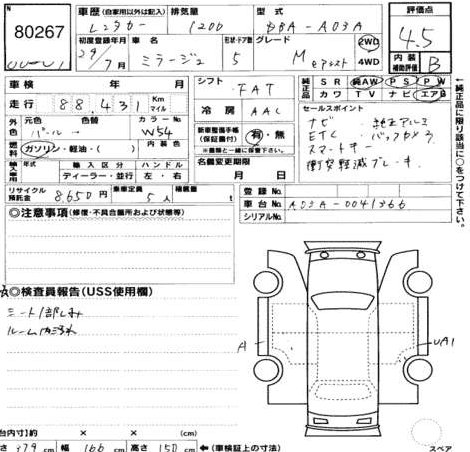 N
80267
車歴 (自家用以外は記入) 排気量 型式
レンタカー 1200 DBA-A03A
初度登録年月 車名 形状・ドア数 グレード 2WD 4WD
29/7 ミラージュ 5 M
評価点
4.5
内装補助評価 B
車検 年 月
走行 88,431 Km マイル
シフト
FAT
冷房 AAC
純正品 SR 純AW PS PW
カワ TV ナビ エアB
←純正品に限り該当に○をつけて下さい。
外色 元色 色替 カラーNo.
パール W54
内装色
燃料 ガソリン・軽油・( )
新車整備手帳(保証書付) 有・無
※書類と一緒に保管下さい。
名義変更期限
月 日
セールスポイント
ナビ 純正アルミ
ETC バックカメラ
スマートキー
衝突軽減ブレーキ
輸入車 輸入区分 ハンドル
ディーラー・並行 左・右
リサイクル預託金 8,650円 乗車定員 5人 積載量 t
登録No.
車台No. A03A-0041366
シリアルNo.
◎注意事項 (修復・不具合箇所および状態等)
☆◎検査員報告(USS使用欄)
シート1部しみ
ルーム内汚れ
A
UA1
台内寸)約 × × (cm)
さ 379 cm 幅 166 cm 高さ 150 cm ←(車検証上の寸法)
スペア